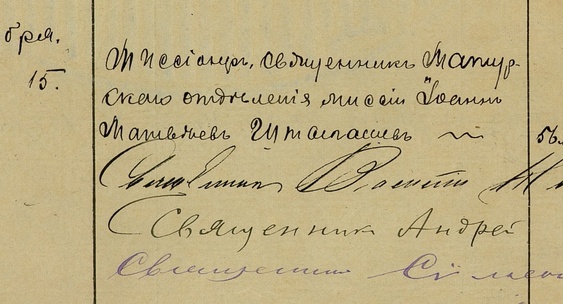 бря.
15.
Миссіонеръ, священникъ Матур-
скаго отдѣленія миссіи Іоаннъ
Матвѣевъ Штыгашевъ
56
Священникъ
Священникъ Андрей
Священникъ